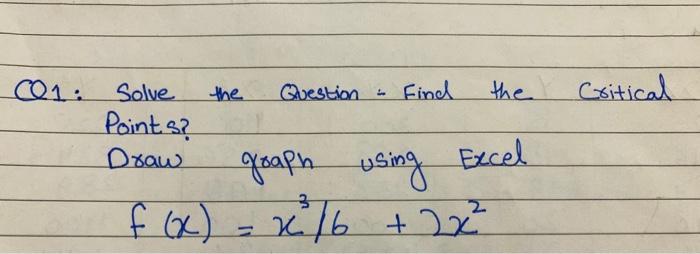 Q1: Solve the Question: Find the Critical
Points?
Draw graph using Excel
f(x) = x³/6 + 2x²